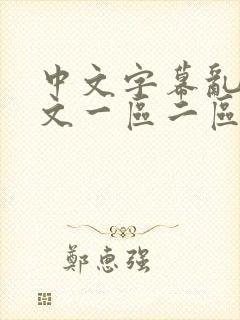 中文字幕亂
文一區二區
鄭惠强